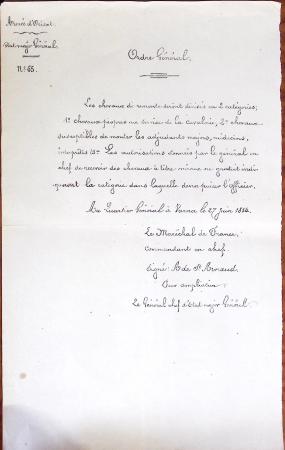 Armée d'Orient.
Etat-major Général
N° 65.
Ordre Général.
Les chevaux de remonte seront divisés en 2 catégories;
1° chevaux propres au service de la cavalerie, 2° chevaux
susceptibles de monter les adjudants majors, médecins,
interprètes &a. Les autorisations données par le général en
chef de recevoir des chevaux à titre même gratuit indi-
queront la catégorie dans laquelle devra puiser l'officier.
Au Quartier Général à Varna le 27 Juin 1854.
Le Maréchal de France,
Commandant en chef
Signé: A. de St Arnaud
Pour ampliation
Le Général chef d'Etat-major Général